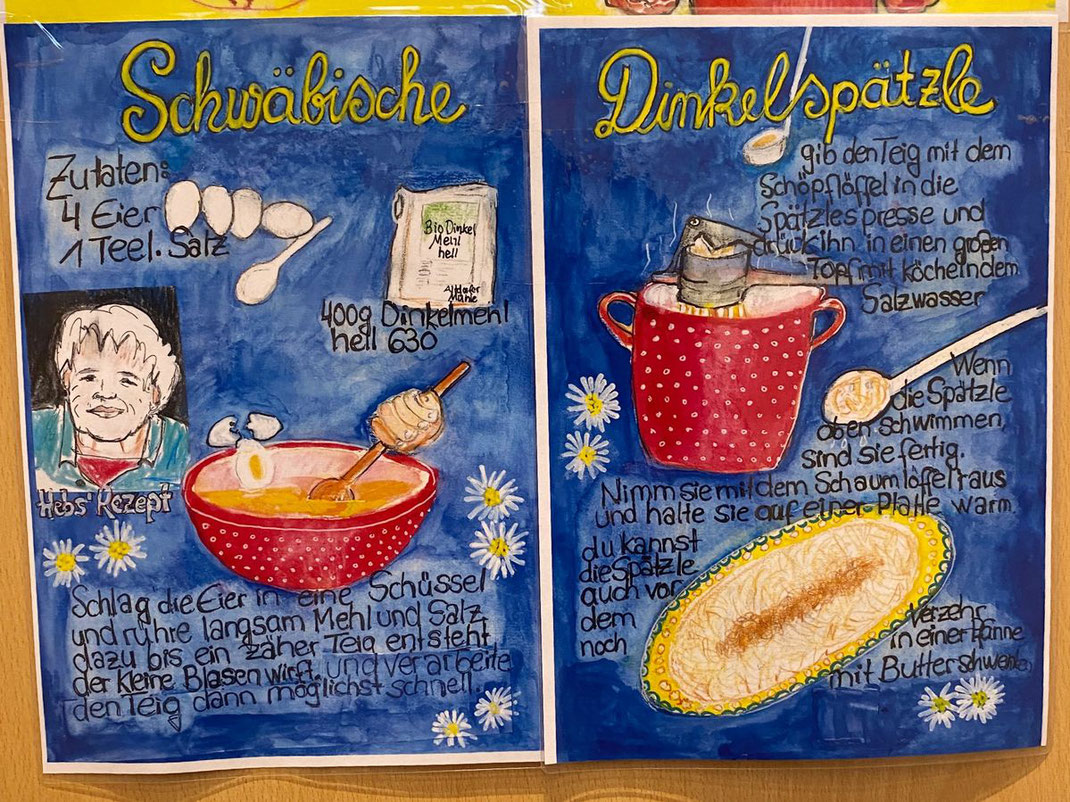 Schwäbische
Zutaten:
4 Eier
1 Teel. Salz
Bio Dinkel
Mehl
hell
Mühle
400g Dinkelmehl
hell 630
Hebs' Rezept
Schlag die Eier in eine Schüssel
und rühre langsam Mehl und Salz
dazu bis ein zäher Teig entsteht
der kleine Blasen wirft. und verarbeite
den Teig dann möglichst schnell.
Dinkelspätzle
gib den Teig mit dem
Schöpflöffel in die
Spätzlespresse und
drück ihn in einen großen
Topf mit köchelndem
Salzwasser
Wenn
die Spätzle
oben schwimmen,
sind sie fertig.
Nimm sie mit dem Schaumlöffel raus
und halte sie auf einer Platte warm.
du kannst
die Spätzle
auch vor
dem
noch
Verzehr
in einer Pfanne
mit Butter schwenken